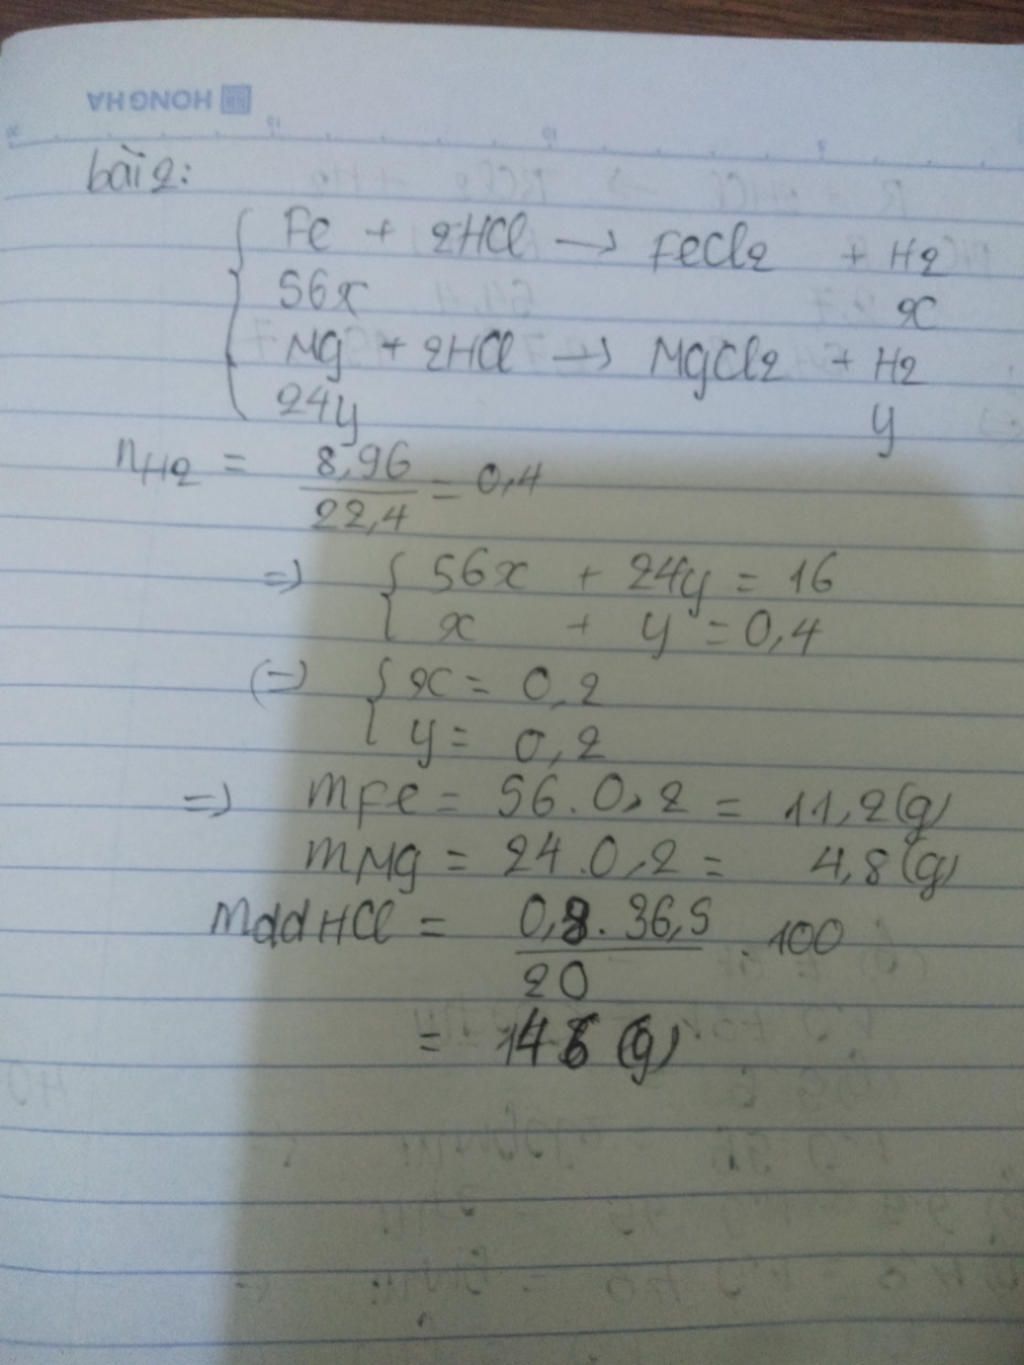 HONG HA
bài 2:
Fe + 2HCl → FeCl2 + H2
56x x
Mg + 2HCl → MgCl2 + H2
24y y
nH2 = 8,96 / 22,4 = 0,4
=> { 56x + 24y = 16
x + y = 0,4
(=) { x = 0,2
y = 0,2
=> mFe = 56.0,2 = 11,2(g)
mMg = 24.0,2 = 4,8(g)
mddHCl = 0,8.36,5 / 20 . 100
= 146 (g)